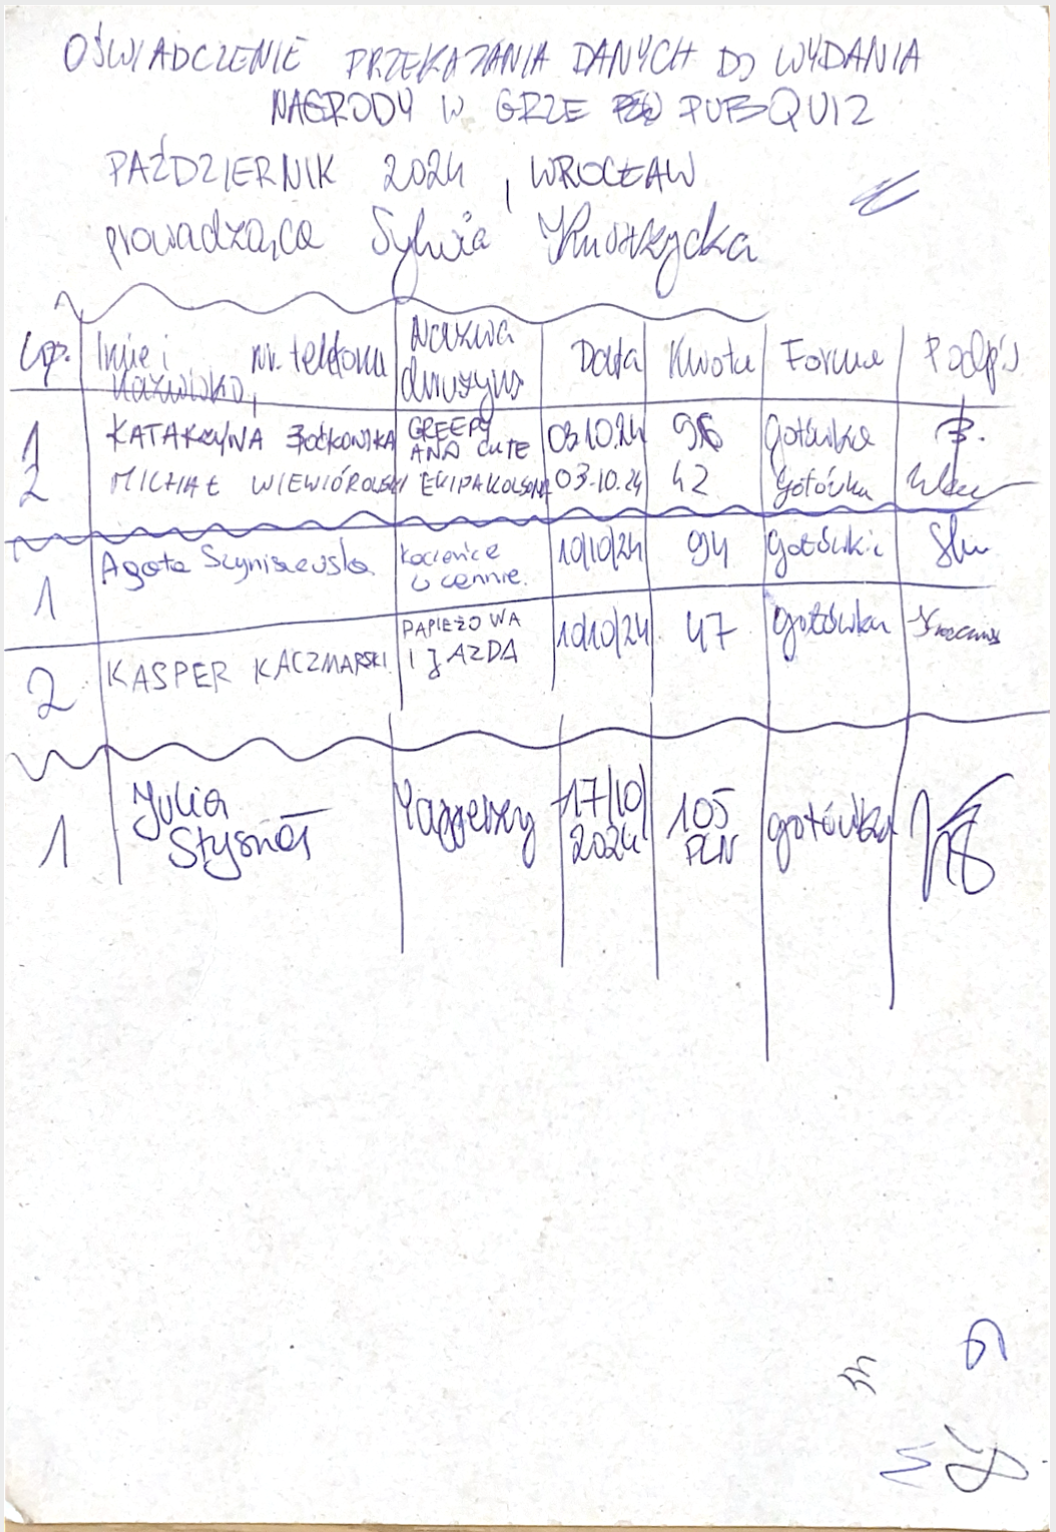 OŚWIADCZENIE PRZEKAZANIA DANYCH DO WYDANIA
NAGRODY W GRZE PUBQUIZ
PAŹDZIERNIK 2024, WROCŁAW
prowadząca Sylwia
Lp. Imię i nazwisko, nr. telefonu Nazwa drużyny Data Kwota Forma Podpis
1 KATARZYNA GREEPY AND CUTE 03.10.24 96 gotówka
2 MICHAŁ WIEWIÓROWSKI 03.10.24 42 gotówka
1 Agata Kocienice u cennie. 10/10/24 94 gotówka
2 KASPER KACZMARSKI PAPIEŻOWA I JAZDA 10/10/24 47 gotówka
1 Julia 17/10/2024 105 PLN gotówka